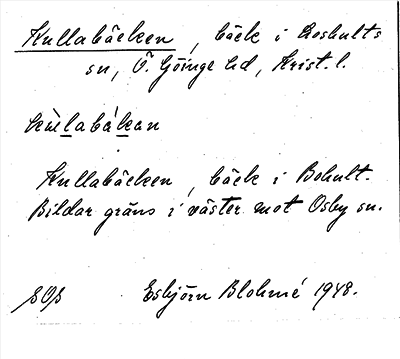 Kullabäcken, bäck i Loshults
sn, Ö. Göinge hd, Krist. l.
kùlabák̇an
Kullabäcken, bäck i Bohult.
Bildar gräns i väster mot Osby sn.
SOŚ Esbjörn Blohmé 1948.